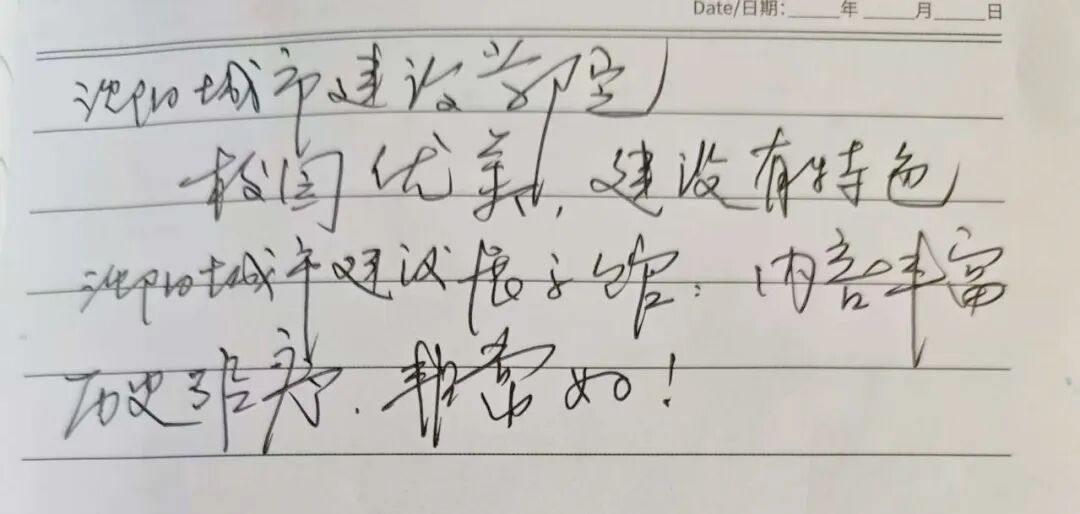 Date/日期:_____年_____月_____日
沈阳城市建设学院
校园优美,建设有特色
沈阳城市建设展示馆:内容丰富
历史雄厚,非常好!